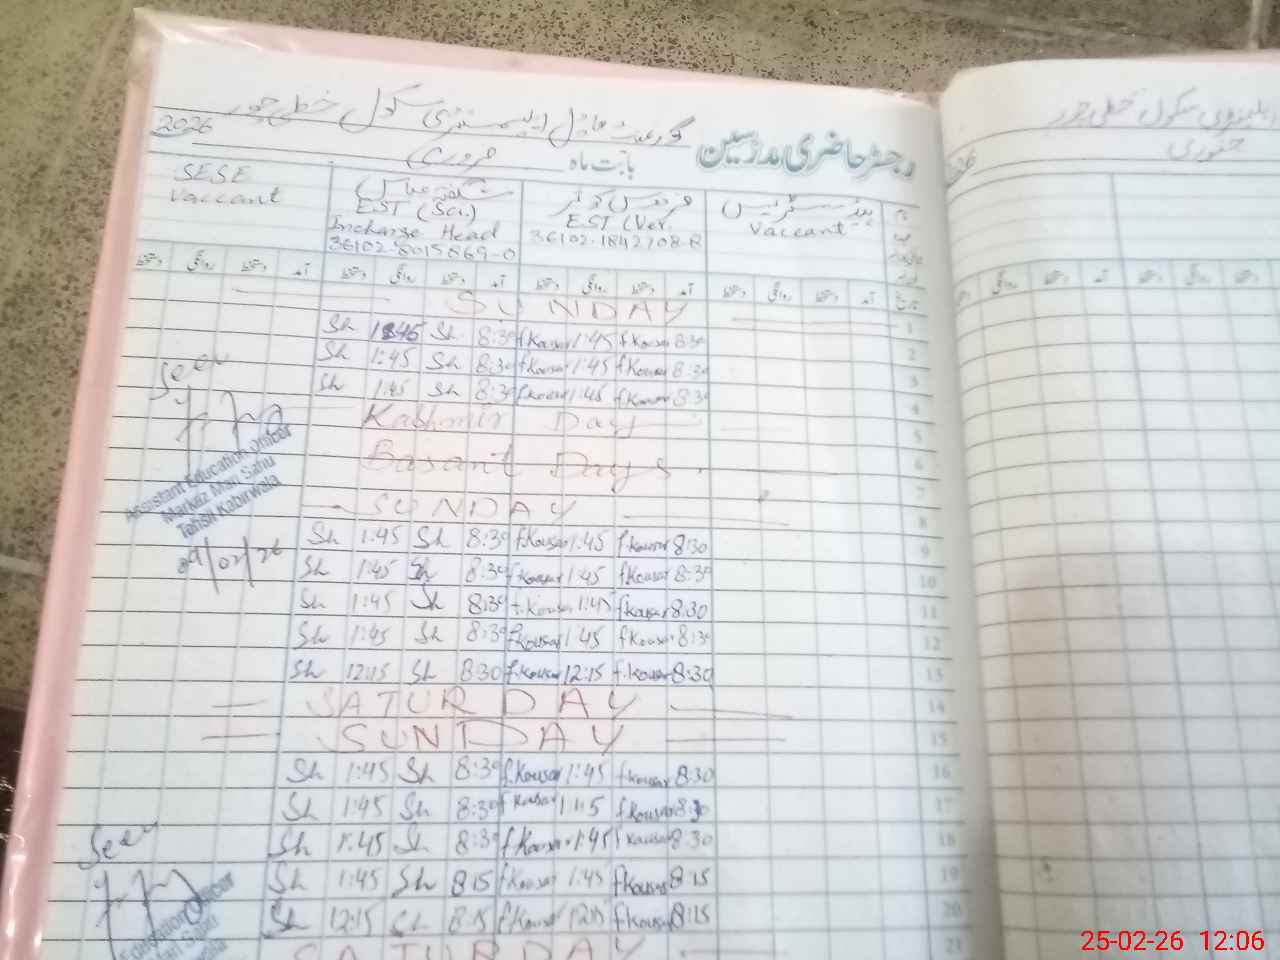 گورنمنٹ ماڈل ایلیمنٹری سکول
2026
رجسٹر حاضری مدرسین
بابت ماہ فروری
SESE
Vaccant
EST (Sci.)
Incharge Head
36102-8015869-0
EST (Ver.
36102-1842708-8
ہیڈ مسٹریس
Vaccant
SUNDAY 1
Sh 1:45 Sh 8:30 f.Kousar 1:45 f.Kousar 8:30 2
Sh 1:45 Sh 8:30 f.Kousar 1:45 f.Kousar 8:30 3
Sh 1:45 Sh 8:30 f.Kousar 1:45 f.Kousar 8:30 4
Kashmir Day 5
Basant Days 6
7
SUNDAY 8
Sh 1:45 Sh 8:30 f.Kousar 1:45 f.Kousar 8:30 9
Sh 1:45 Sh 8:30 f.Kousar 1:45 f.Kousar 8:30 10
Sh 1:45 Sh 8:30 f.Kousar 1:45 f.Kousar 8:30 11
Sh 1:45 Sh 8:30 f.Kousar 1:45 f.Kousar 8:30 12
Sh 12:15 Sh 8:30 f.Kousar 12:15 f.Kousar 8:30 13
SATURDAY 14
SUNDAY 15
Sh 1:45 Sh 8:30 f.Kousar 1:45 f.Kousar 8:30 16
Sh 1:45 Sh 8:30 f.Kousar 1:45 f.Kousar 8:30 17
Sh 1:45 Sh 8:30 f.Kousar 1:45 f.Kousar 8:30 18
Sh 1:45 Sh 8:15 f.Kousar 1:45 f.Kousar 8:15 19
Sh 12:15 Sh 8:15 f.Kousar 12:15 f.Kousar 8:15 20
SATURDAY 21
Seen
Assistant Education Officer
Markaz Mari Sahu
Tehsil Kabirwala
09/02/26
Seen
Education Officer
Mari Sahu
جنوری
25-02-26 12:06